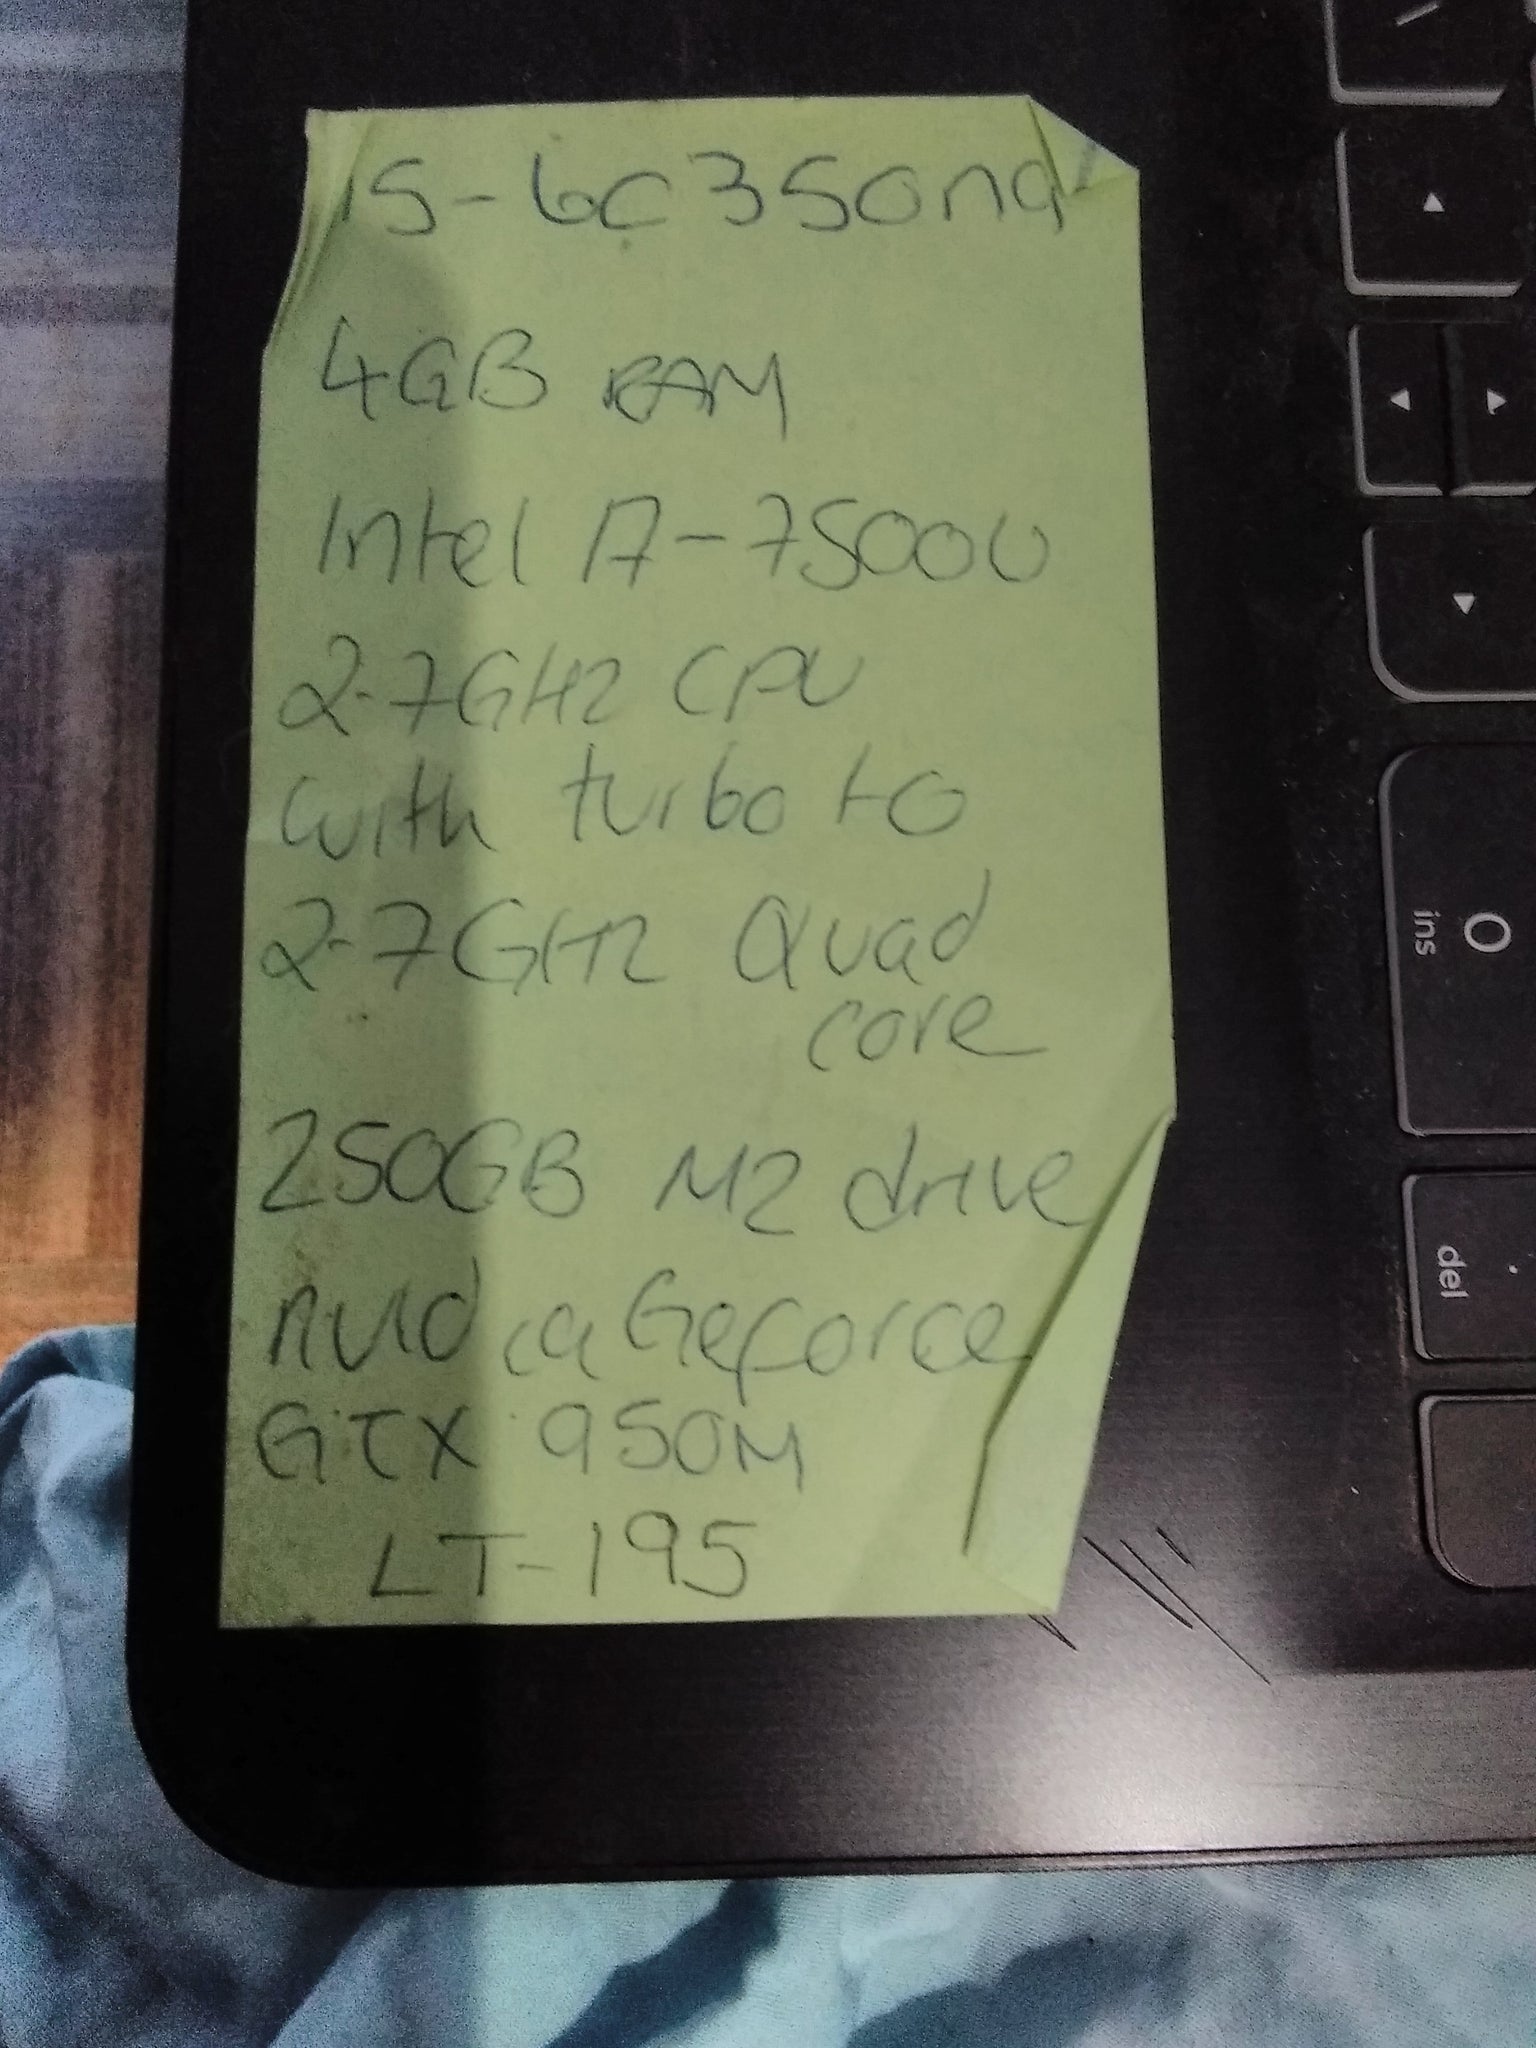 15-bc350na
4GB RAM
Intel i7-7500U
2.7GHz CPU
with turbo to
2.7GHz Quad
core
250GB M2 drive
nvidia Geforce
GTX 950M
LT-195
0
ins
.
del